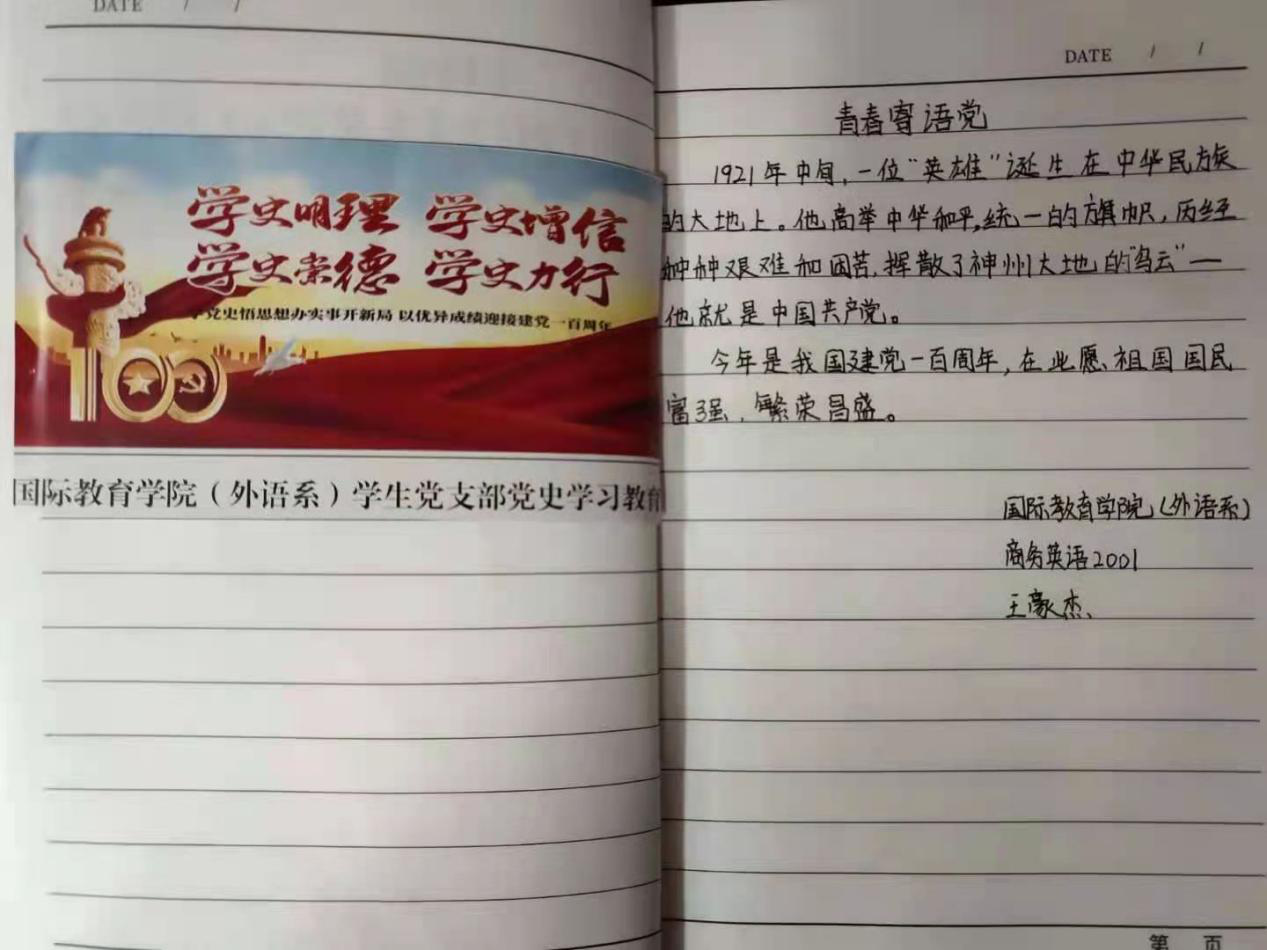 DATE / /
学史明理 学史增信
学史崇德 学史力行
学党史悟思想办实事开新局 以优异成绩迎接建党一百周年
100
国际教育学院（外语系）学生党支部党史学习教育
DATE / /
青春寄语党
1921年中旬,一位“英雄”诞生在中华民族
的大地上。他高举中华和平,统一的旗帜,历经
种种艰难和困苦,挥散了神州大地的“乌云”—
他就是中国共产党。
今年是我国建党一百周年,在此愿祖国国民
富强、繁荣昌盛。
国际教育学院（外语系）
商务英语2001
王豪杰、
第 页